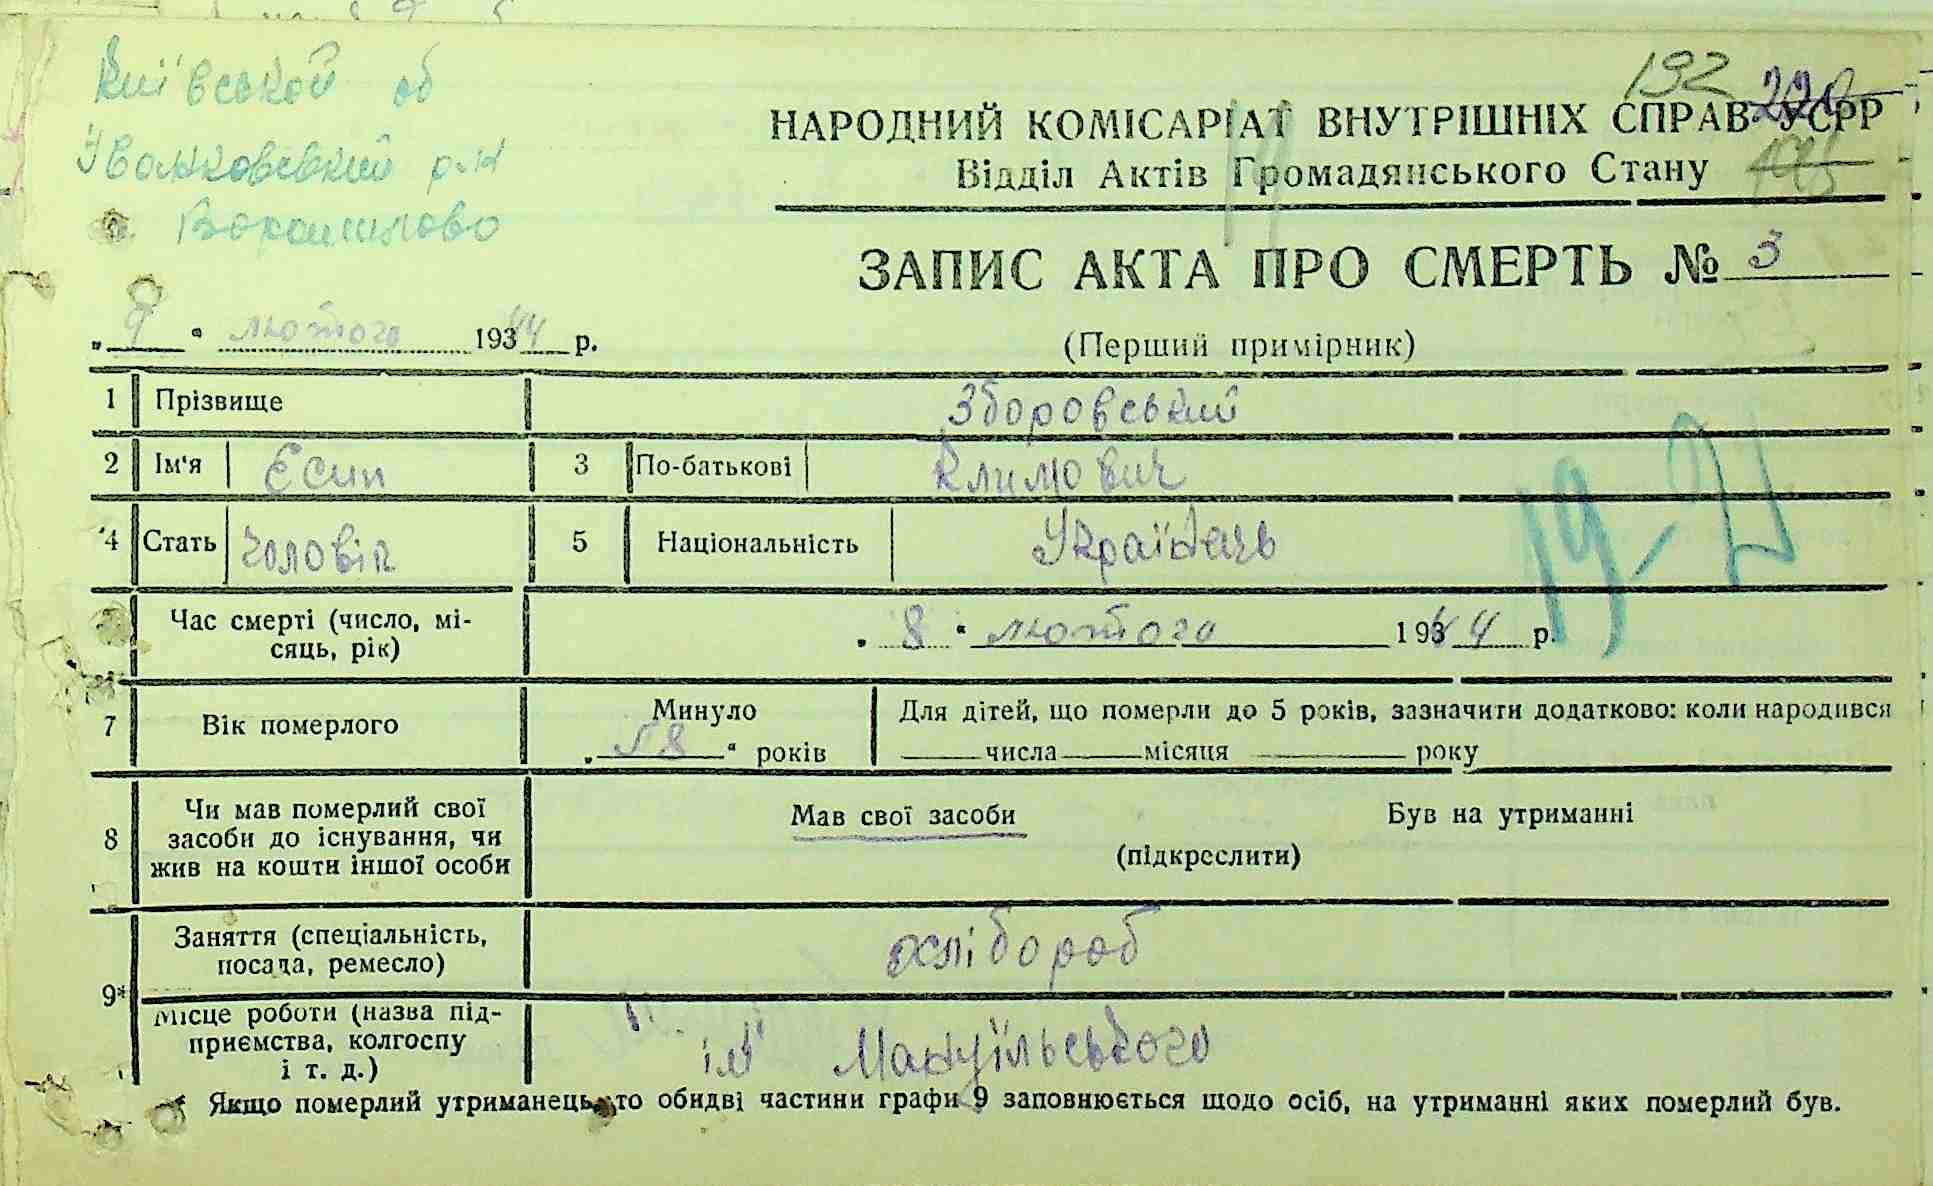 Київської об
Іванковський р-н
192 220
НАРОДНИЙ КОМІСАРІАТ ВНУТРІШНІХ СПРАВ УСРР
Відділ Актів Громадянського Стану
ЗАПИС АКТА ПРО СМЕРТЬ № 3
„ 9 “ лютого 1944 р.
(Перший примірник)
1 Прізвище Зборовський
2 Ім'я Єсип 3 По-батькові Климович
4 Стать Чоловік 5 Національність Українець
Час смерті (число, мі-
сяць, рік) „ 8 “ лютого 1944 р.
19-21
7 Вік померлого Минуло „ 58 “ років Для дітей, що померли до 5 років, зазначити додатково: коли народився
числа місяця року
8 Чи мав померлий свої
засоби до існування, чи
жив на кошти іншої особи
Мав свої засоби Був на утриманні
(підкреслити)
9* Заняття (спеціальність,
посада, ремесло) хлібороб
Місце роботи (назва під-
приємства, колгоспу
і т. д.) ім Мануїльського
* Якщо померлий утриманець, то обидві частини графи 9 заповнюється щодо осіб, на утриманні яких померлий був.